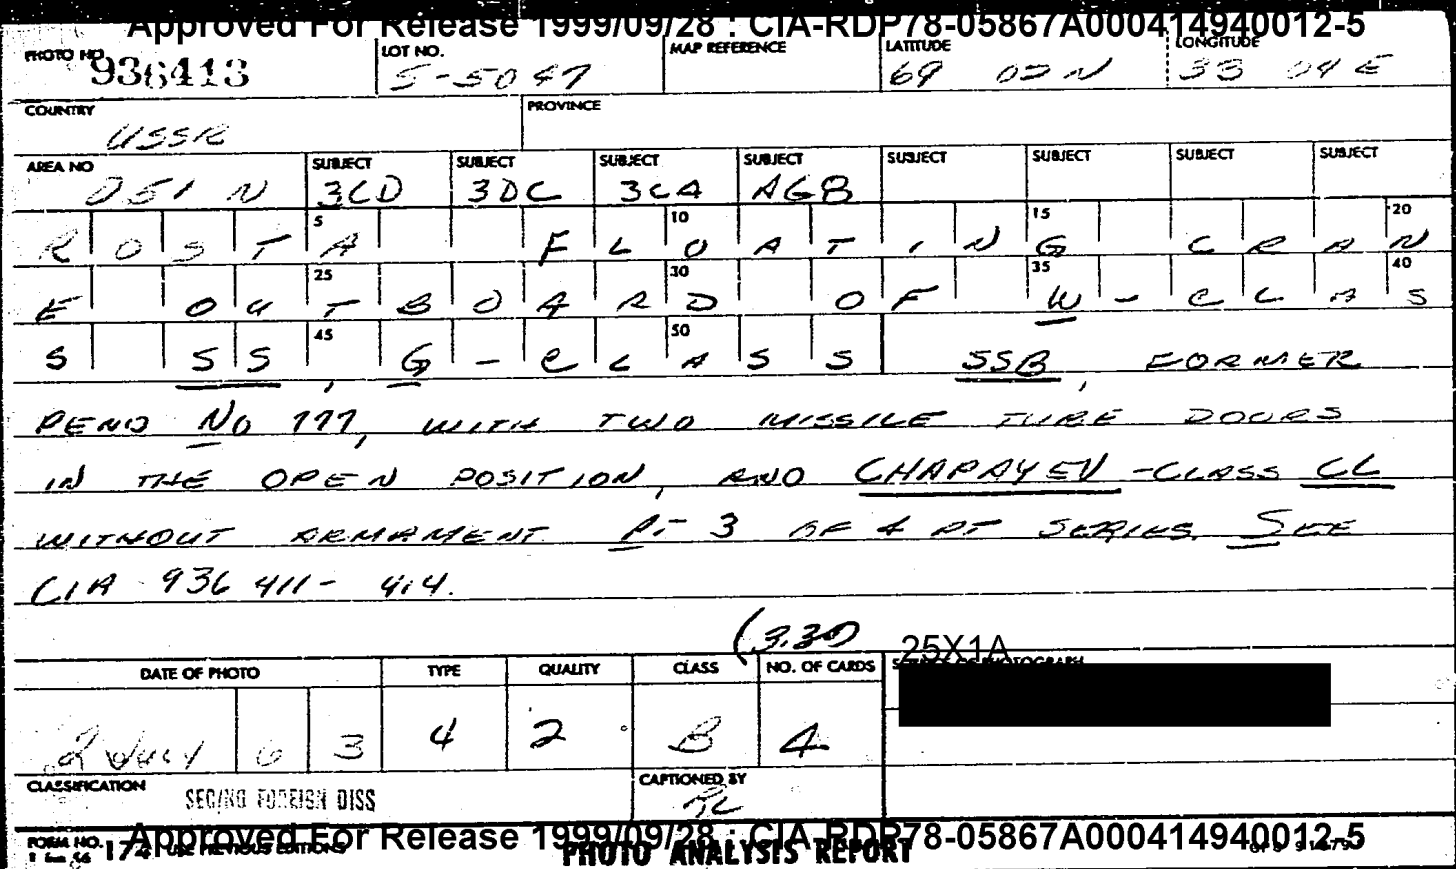 Approved For Release 1999/09/28 : CIA-RDP78-05867A000414940012-5
PHOTO NO. 936413 LOT NO. S-5047 MAP REFERENCE LATITUDE 69 02 N LONGITUDE 33 04 E
COUNTRY USSR PROVINCE
AREA NO 051 N SUBJECT 3CD SUBJECT 3DC SUBJECT 3CA SUBJECT AGB SUBJECT SUBJECT SUBJECT SUBJECT
5 10 15 20
ROSTA FLOATING CRAN
25 30 35 40
E OUTBOARD OF W-CLAS
45 50
S SS, G-CLASS SSB, FORMER
PEND No 777, WITH TWO MISSILE TUBE DOORS
IN THE OPEN POSITION, AND CHAPAYEV-CLASS CL
WITHOUT ARMAMENT. PT 3 OF 4 PT SERIES. SEE
CIA 936411-414.
(3.30)
25X1A
DATE OF PHOTO TYPE QUALITY CLASS NO. OF CARDS
2 July 63 4 2 B 4
CLASSIFICATION SEC/NO FOREIGN DISS CAPTIONED BY RL
FORM NO. 174 USE PREVIOUS EDITIONS
Approved For Release 1999/09/28 : CIA-RDP78-05867A000414940012-5
PHOTO ANALYSIS REPORT